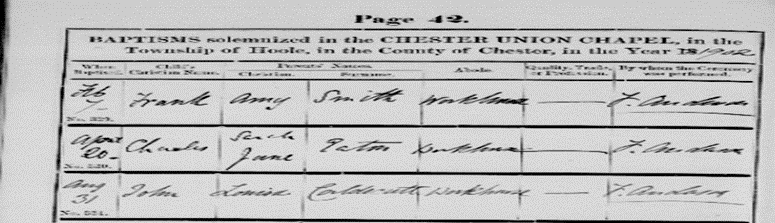 Page 42.
BAPTISMS solemnized in the CHESTER UNION CHAPEL, in the
Township of Hoole, in the County of Chester, in the Year 18 1902
When Baptized. Child's Christian Name. Parents' Names. Christian. Surname. Abode. Quality, Trade, or Profession. By whom the Ceremony was performed.
Feb 7 Frank Amy Smith Workhouse
No. 329.
April 20 Charles Sarah Jane Eaton Workhouse
No. 330.
Aug 31 John Louisa Workhouse
No. 331.